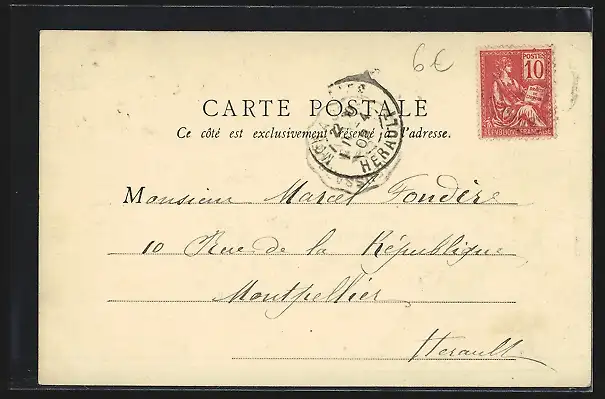 6€
POSTES
10
REPUBLIQUE FRANÇAISE
CARTE POSTALE
Ce côté est exclusivement réservé à l'adresse.
HERAULT
Monsieur Marcel Fondère
10 Rue de la République
Montpellier
Herault